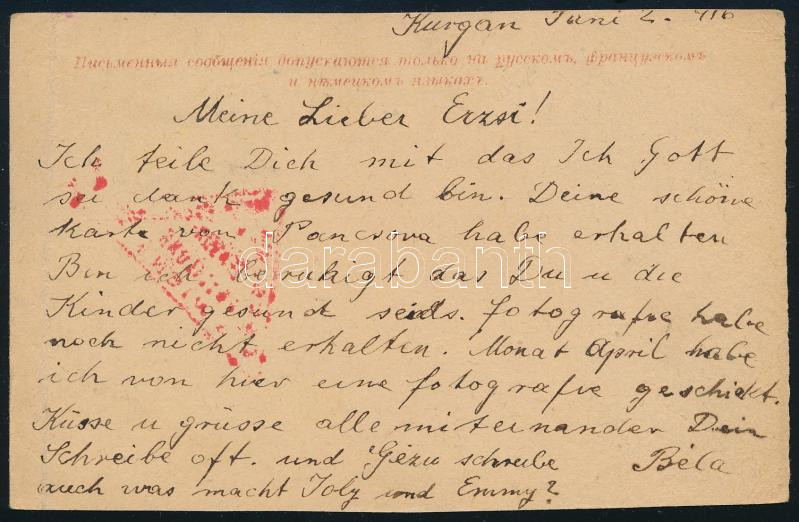 Kurgan Juni 2. 916
Письменныя сообщенія допускаются только на русскомъ, французскомъ
и нѣмецкомъ языкахъ.
Meine Lieber Erzsi!
Ich teile Dich mit das Ich Gott
sei dank gesund bin. Deine schöne
karte von Pancsova habe erhalten
Bin ich beruhigt das Du u die
Kinder gesund seids. fotografie habe
noch nicht erhalten. Monat April habe
ich von hier eine fotografie geschickt.
Küsse u grüsse alle miteinander Dein
Schreibe oft. und Géza schreibe Béla
auch was macht Joly und Emmy?
darabanth